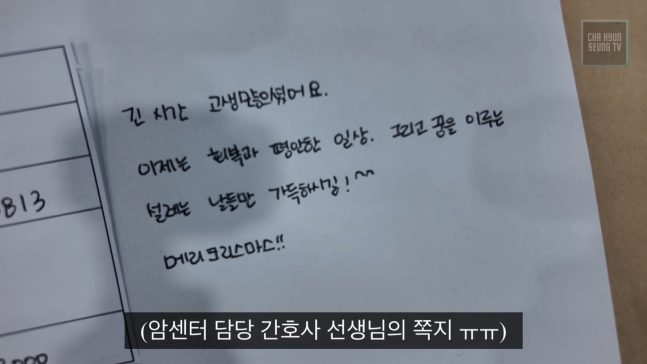 CHA HYUN
SEUNG TV
긴 시간 고생많으셨어요.
이제는 회복과 평안한 일상. 그리고 꿈을 이루는
설레는 날들만 가득하시길! ^^
메리크리스마스!!
813
000
(암센터 담당 간호사 선생님의 쪽지 ㅠㅠ)